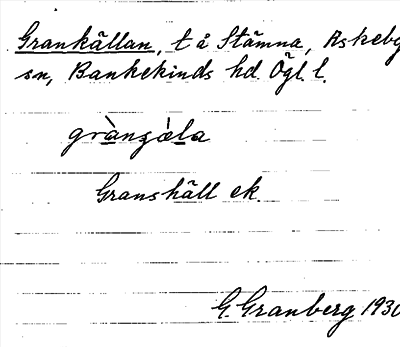 Grankällan, t å Stämna, Askeby
sn, Bankekinds hd. Ögl. l.
grànʒæ̀la
Granshäll ek.
G. Granberg 1930